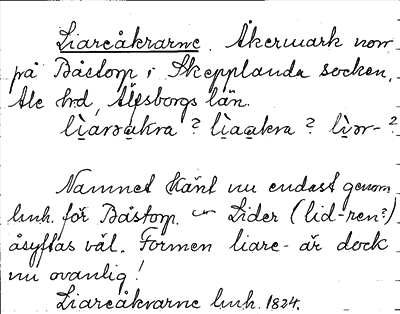 Liareåkrarne. Åkermark norr
på Båstorp i Skepplanda socken,
Ale hrd, Älfsborgs län.
lìarəakra ? lìaakra ? lìər- ?
Namnet känt nu endast genom
lmh. för Båstorp. – Lider (lid-ren?)
åsyftas väl. Formen liare- är dock
nu ovanlig!
Liareåkrarne lmh. 1824.